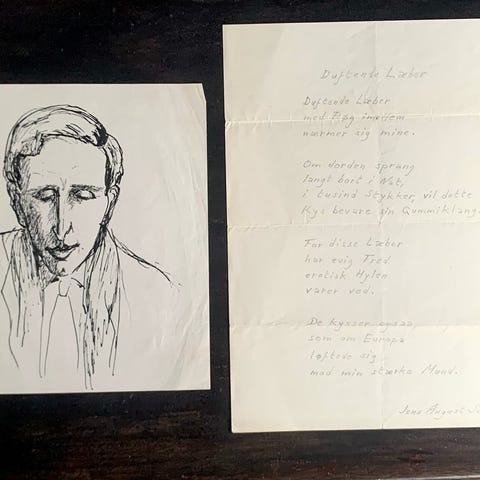 Duftende Læber
Duftende Læber
med Røg imellem
nærmer sig mine.
Om Jorden sprang
langt bort i Nat,
i tusind Stykker, vil dette
Kys bevare sin Gummiklang.
For disse Læber
har evig Fred
erotisk Hylen
varer ved.
De kysser ogsaa,
som om Europa
løftede sig
mod min stærke Mund.
Jens August